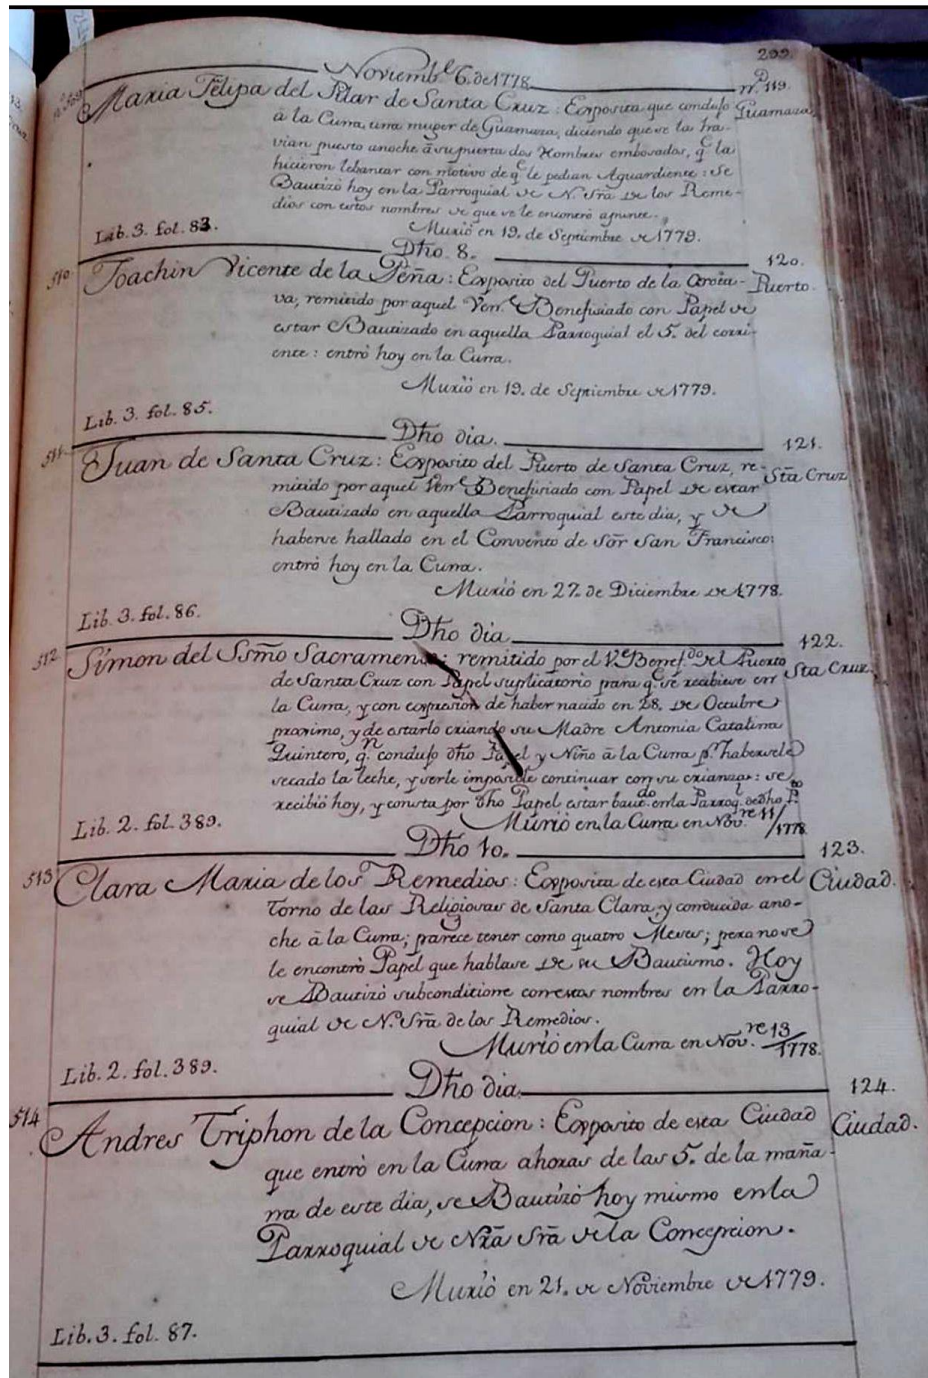 299.
Noviemb.e 6. de 1778.
n.º 119.
509
Maria Felipa del Pilar de Santa Cruz: Exposita que condujo Guamaza
à la Cuna, una muger de Guamaza, diciendo que se la ha-
vian puesto anoche â su puerta dos Hombres embosados, q.e la
hicieron lebantar con motivo de q.e le pedian Aguardiente: Se
Bautizò hoy en la Parroquial de N. Srâ de los Reme-
dios con estos nombres de que se le encontrò apunte.
Lib. 3. fol. 83.
Muriò en 19. de Septiembre de 1779.
Dho 8.
120.
510
Joachin Vicente de la Peña: Exposito del Puerto de la Orota- Puerto.
va, remitido por aquel Ven.e Benefisiado con Papel de
estar Bautizado en aquella Parroquial el 5. del corri-
ente: entrò hoy en la Cuna.
Muriò en 19. de Septiembre de 1779.
Lib. 3. fol. 85.
Dho dia.
121.
511
Juan de Santa Cruz: Exposito del Puerto de Santa Cruz, re- Sta Cruz
mitido por aquel Ven.e Benefisiado con Papel de estar
Bautizado en aquella Parroquial este dia, y de
haberse hallado en el Convento de Sôr San Francisco:
entrò hoy en la Cuna.
Muriò en 27. de Diciembre de 1778.
Lib. 3. fol. 86.
Dho dia
122.
512
Simon del Ssmo Sacramento: remitido por el V.e Benef.do del Puerto Sta Cruz
de Santa Cruz con Papel suplicatorio para q.e se recibiese en
la Cuna, y con expresion de haber nacido en 28. de Octubre
proximo, y de estarlo criando su Madre Antonia Catalina
Quintero, q.n condujo dho Papel y Niño â la Cuna p.r habersele
secado la leche, y serle imposible continuar con su crianza: se
recibiò hoy, y consta por dho Papel estar baut.do en la Parroq.l de dho P.to
Lib. 2. fol. 389.
Muriò en la Cuna en Nov.re 11/1778
Dho 10.
123.
513
Clara Maria de los Remedios: Exposita de esta Ciudad en el Ciudad.
Torno de las Religiosas de Santa Clara, y conducida ano-
che â la Cuna; parece tener como quatro Meses; pero no se
le encontrò Papel que hablase de su Bautismo. Hoy
se Bautizò subconditione con estos nombres en la Parro-
quial de N.ª Srâ de los Remedios.
Muriò en la Cuna en Nov.re 13/1778.
Lib. 2. fol. 389.
Dho dia.
124.
514
Andres Triphon de la Concepcion: Exposito de esta Ciudad Ciudad.
que entrò en la Cuna ahoras de las 5. de la maña-
na de este dia, se Bautizò hoy mismo en la
Parroquial de Nrâ Srâ de la Concepcion.
Muriò en 21. de Noviembre de 1779.
Lib. 3. fol. 87.